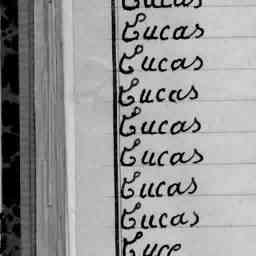 Lucas
Lucas
Lucas
Lucas
Lucas
Lucas
Lucas
Lucas
Luce